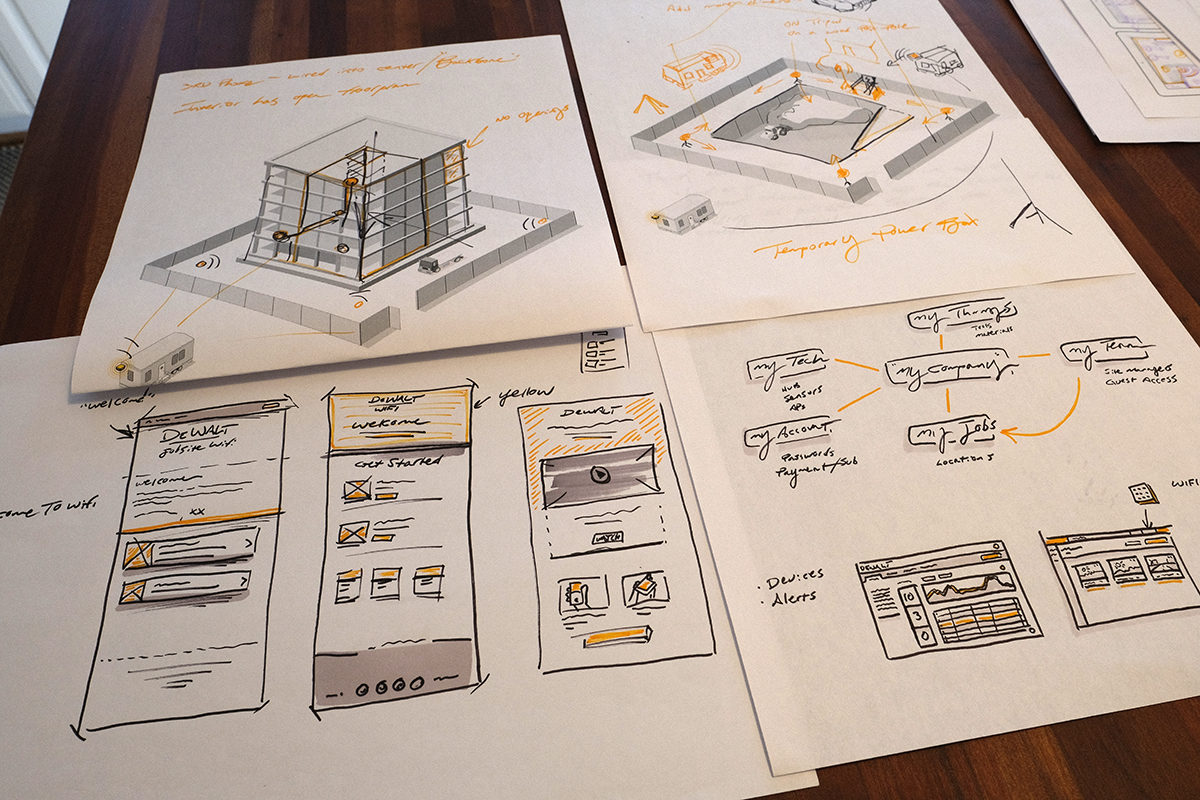 wired into center/"Backbone"
Interior has open floorplan
no openings
ON Tripod
Temporary Power Box
"welcome"
DEWALT
Jobsite Wifi
welcome
XX
come To Wifi
DEWALT
WIFI
welcome
Get Started
yellow
DEWALT
WATCH
my Things
Tools
materials
my Tech
Hub
Sensors
APs
"my Company"
my Team
Site managers
Guest Access
my Account
Passwords
Payment/Sub
my Jobs
Locations
WIFI
· Devices
· Alerts
DEWALT
10
3
0